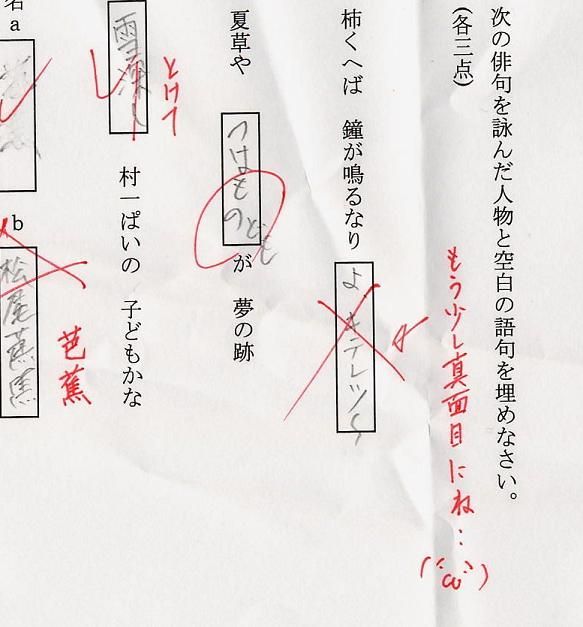 次の俳句を詠んだ人物と空白の語句を埋めなさい。
(各三点)
もう少し真面目にね…
柿くへば 鐘が鳴るなり
よ キテレツ
夏草や つはものども が 夢の跡
とけて
雪 村一ぱいの 子どもかな
名
a
b
松尾芭
芭蕉